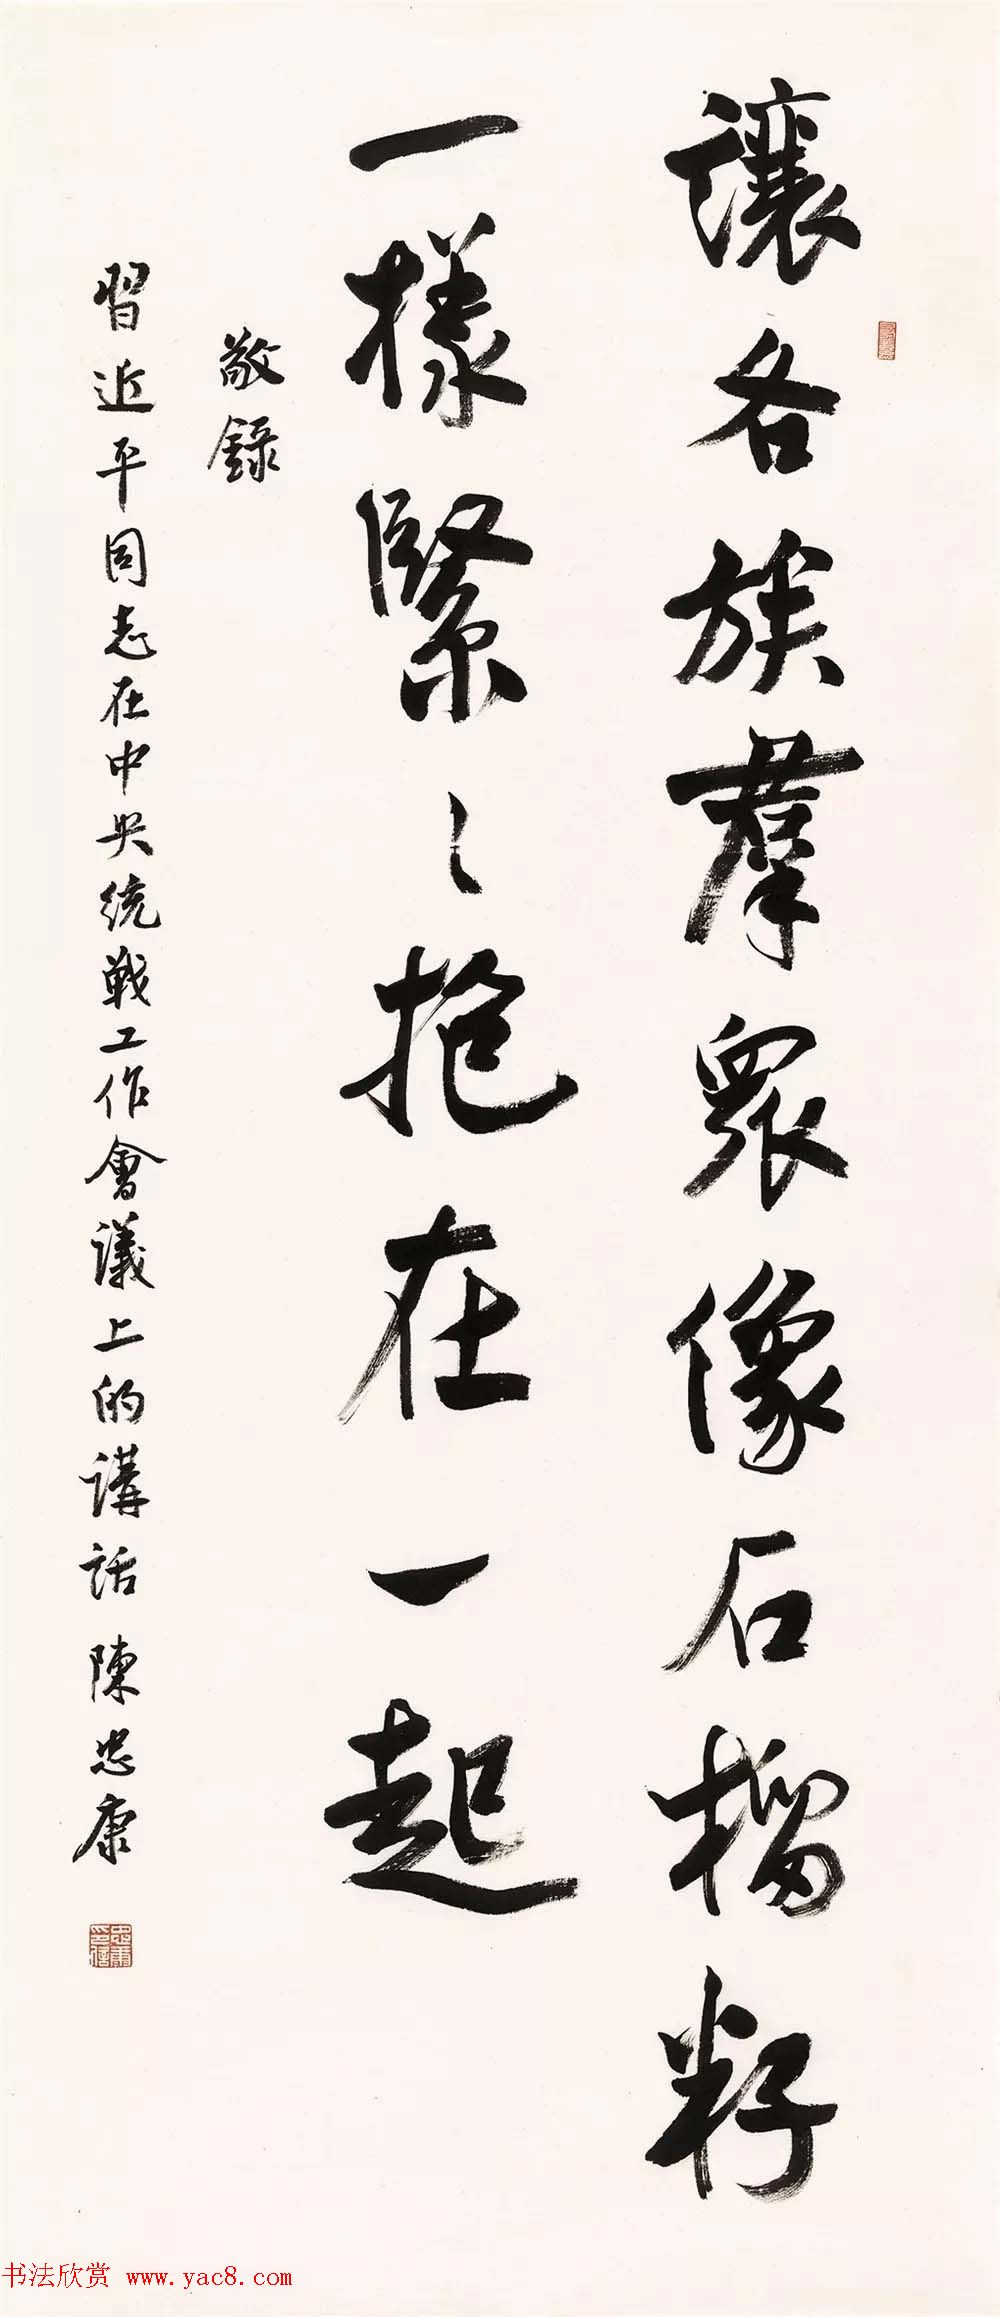 讓各族群眾像石榴籽
一樣緊〻抱在一起
敬錄
習近平同志在中央統戰工作會議上的講話 陳忠康
书法欣赏 www.yac8.com